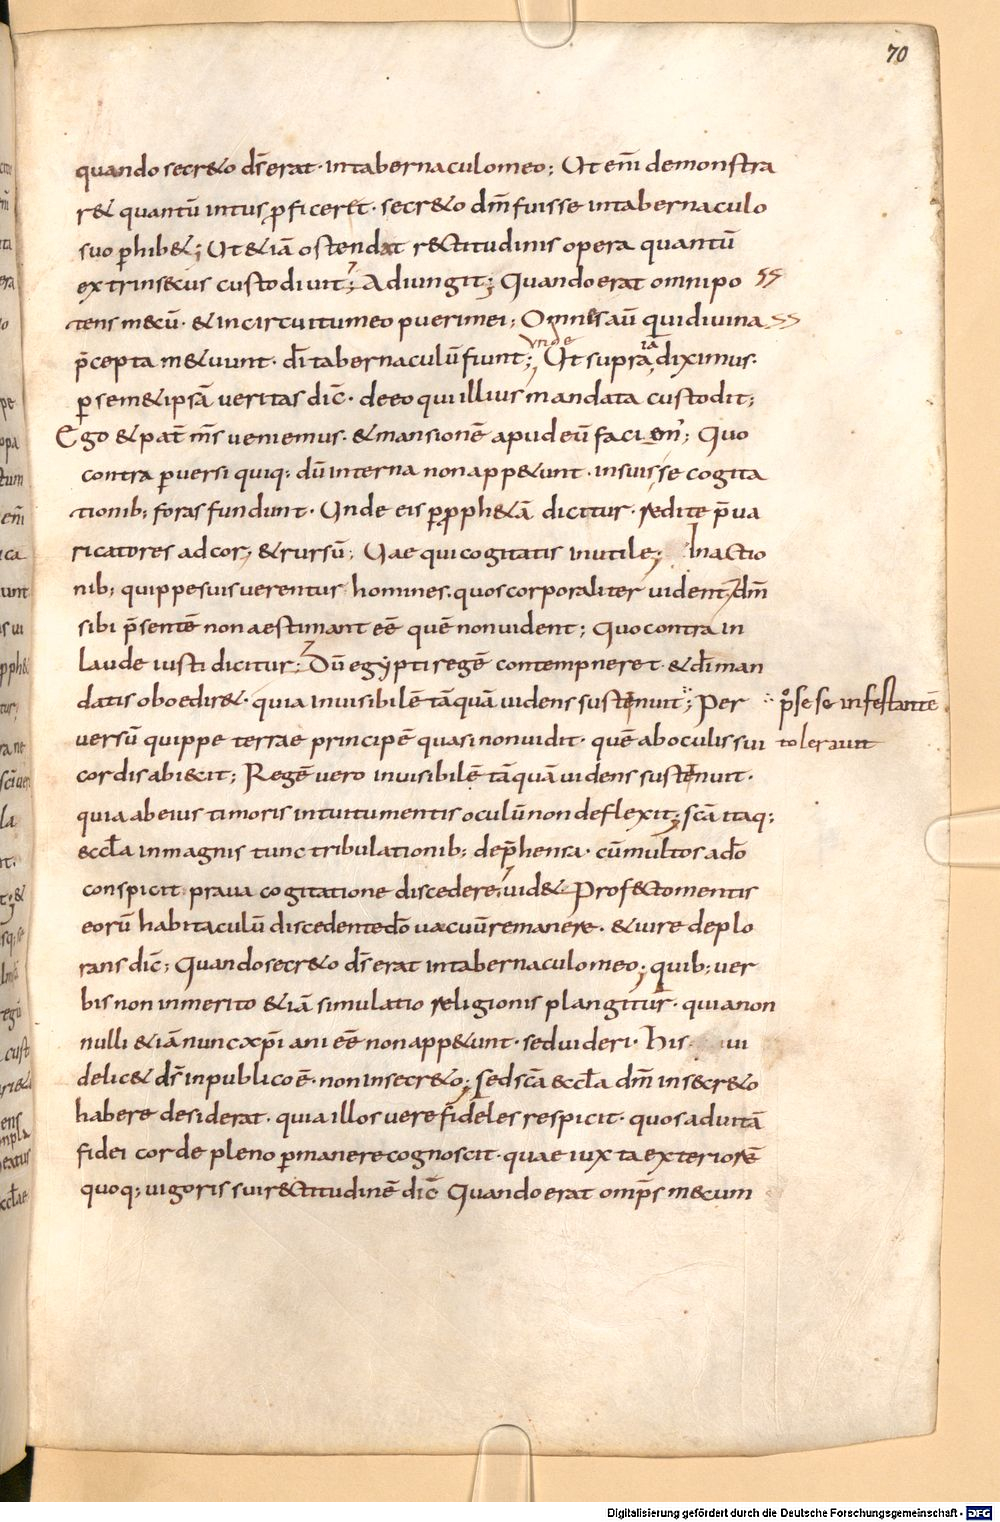 70
quando secr&o ds̄ erat · in tabernaculo meo ; Ut enī demonstra
r& quantū intus ꝓficeret · secr&o dm̄ fuisse in tabernaculo
suo ꝑhib& ; Ut &iā ostendat rectitudinis opera quantū
extrinsecus custodiuit ; Adiungit ; Quando erat omnipo
tens mecū · & in circuitu meo pueri mei ; Omnes aū qui diuina
unde iā
p̄cepta m&uunt · dī tabernaculū fiunt ; Ut supra diximus ·
ꝑ sem&ipsā ueritas dic̄ · de eo qui illius mandata custodit ;
Ego & pat̄ ms̄ ueniemus · & mansionē apud eū faciem' ; Quo
contra ꝑuersi quiq: dū interna non app&unt · in suis se cogita
tionib: foras fundunt · Unde eis ꝑ ꝓph&ā dicitur · redite p̄ua
ricatores ad cor ; & rursū ; Uae qui cogitatis inutile ; In actio
nib: quippe suis uerentur homines · quos corporaliter uident ; dm̄
sibi p̄sentē non aestimant eē quē non uident ; Quo contra in
laude iusti dicitur ; Dū egypti regē contempneret · & dī man
datis oboedir& · quia inuisibilē tāquā uidens sustenuit ; Per
p̊ se se infestantē
tolerauit
uersū quippe terrae principē quasi non uidit · quē ab oculis sui
cordis abiecit ; Regē uero inuisibilē tāquā uidens sustenuit ·
quia ab eius timoris intuitu mentis oculū non deflexit ; sc̄a itaq:
eccl̄a in magnis tunc tribulationib: dep̄hensa · cū multos a dō
conspicit praua cogitatione discedere ; uid& Profecto mentis
eorū habitaculū discedente dō uacuū remanere · & uire deplo
rans dic̄ ; Quando secr&o ds̄ erat in tabernaculo meo ; quib: uer
bis non inmerito &iā simulatio religionis plangitur · quia non
nulli &iā nunc xp̄iani eē non app&unt · sed uideri · His ui
delic& ds̄ in publico ē · non in secr&o ; sed sc̄a eccl̄a dm̄ in secr&o
habere desiderat · quia illos uere fideles respicit · quos ad uitā
fidei corde pleno ꝑmanere cognoscit · quae iuxta exteriorē
quoq: uigoris sui rectitudinē dic̄ Quando erat omp̄s mecum
Digitalisierung gefördert durch die Deutsche Forschungsgemeinschaft - DFG